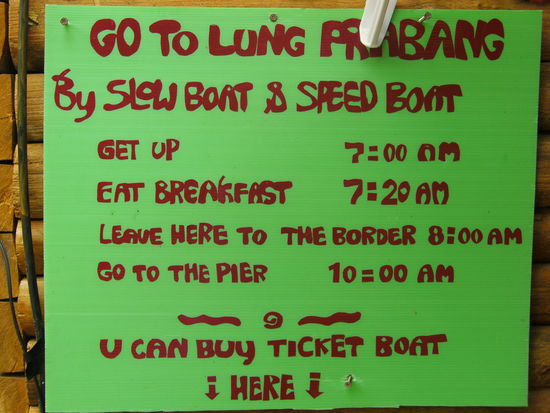 GO TO LUNG PRABANG
By SLOW BOAT & SPEED BOAT
GET UP 7:00 AM
EAT BREAKFAST 7:20 AM
LEAVE HERE TO THE BORDER 8:00 AM
GO TO THE PIER 10:00 AM
U CAN BUY TICKET BOAT
↓ HERE ↓